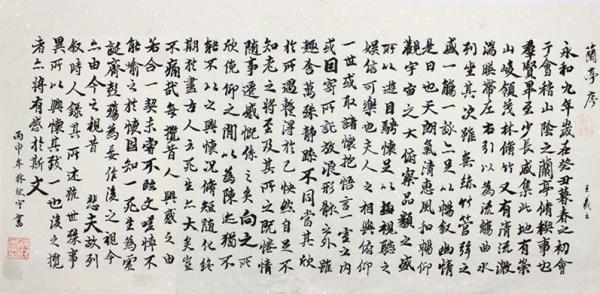 蘭亭序
王羲之
永和九年歲在癸丑暮春之初會
于會稽山陰之蘭亭脩禊事也
群賢畢至少長咸集此地有崇
山峻領茂林脩竹又有清流激
湍暎帶左右引以為流觴曲水
列坐其次雖無絲竹管弦之
盛一觴一詠亦足以暢叙幽情
是日也天朗氣清惠風和暢仰
觀宇宙之大俯察品類之盛
所以遊目騁懷足以極視聽之
娛信可樂也夫人之相與俯仰
一世或取諸懷抱悟言一室之內
或因寄所託放浪形骸之外雖
趣舍萬殊靜躁不同當其欣
於所遇暫得於己怏然自足不
知老之將至及其所之既惓情
隨事遷感慨係之矣向之所
欣俛仰之間以為陳迹猶不
能不以之興懷況脩短隨化終
期於盡古人云死生亦大矣豈
不痛哉每攬昔人興感之由
若合一契未嘗不臨文嗟悼不
能喻之於懷固知一死生為虛
誕齊彭殤為妄作後之視今
亦由今之視昔 悲夫故列
叙時人錄其所述雖世殊事
異所以興懷其致一也後之攬
者亦將有感於斯文
丙申年林欽宇書